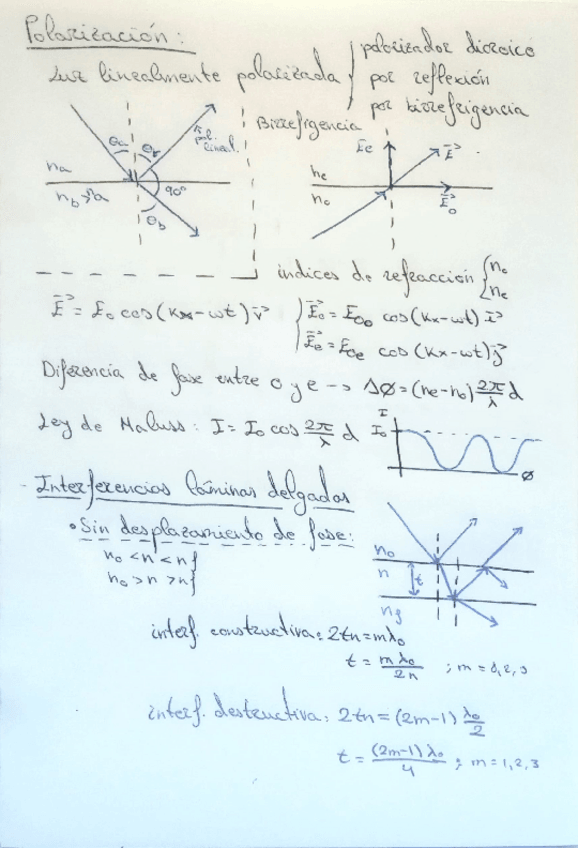 Polarización:
Luz linealmente polarizada { polarizador dicroico
por reflexión
por birrefrigencia
θa θr pol. lineal.
na
nb > na
90º
θb
Birrefrigencia
Ee E
ne
no
Eo
índices de refracción { no
ne
E = Eo cos(kx-ωt) v
Eo = Eoo cos(kx-ωt) i
Ee = Eoe cos(kx-ωt) j
Diferencia de fase entre o y e → Δφ = (ne-no) 2π/λ d
Ley de Maluss: I = Io cos 2π/λ d
I
Io
φ
- Interferencias láminas delgadas
• Sin desplazamiento de fase:
no < n < nf
no > n > nf
no
n
t
nf
interf. constructiva: 2tn = mλo
t = mλo/2n ; m =
interf. destructiva: 2tn = (2m-1) λo/2
t = (2m-1)λo/4 ; m = 1,2,3